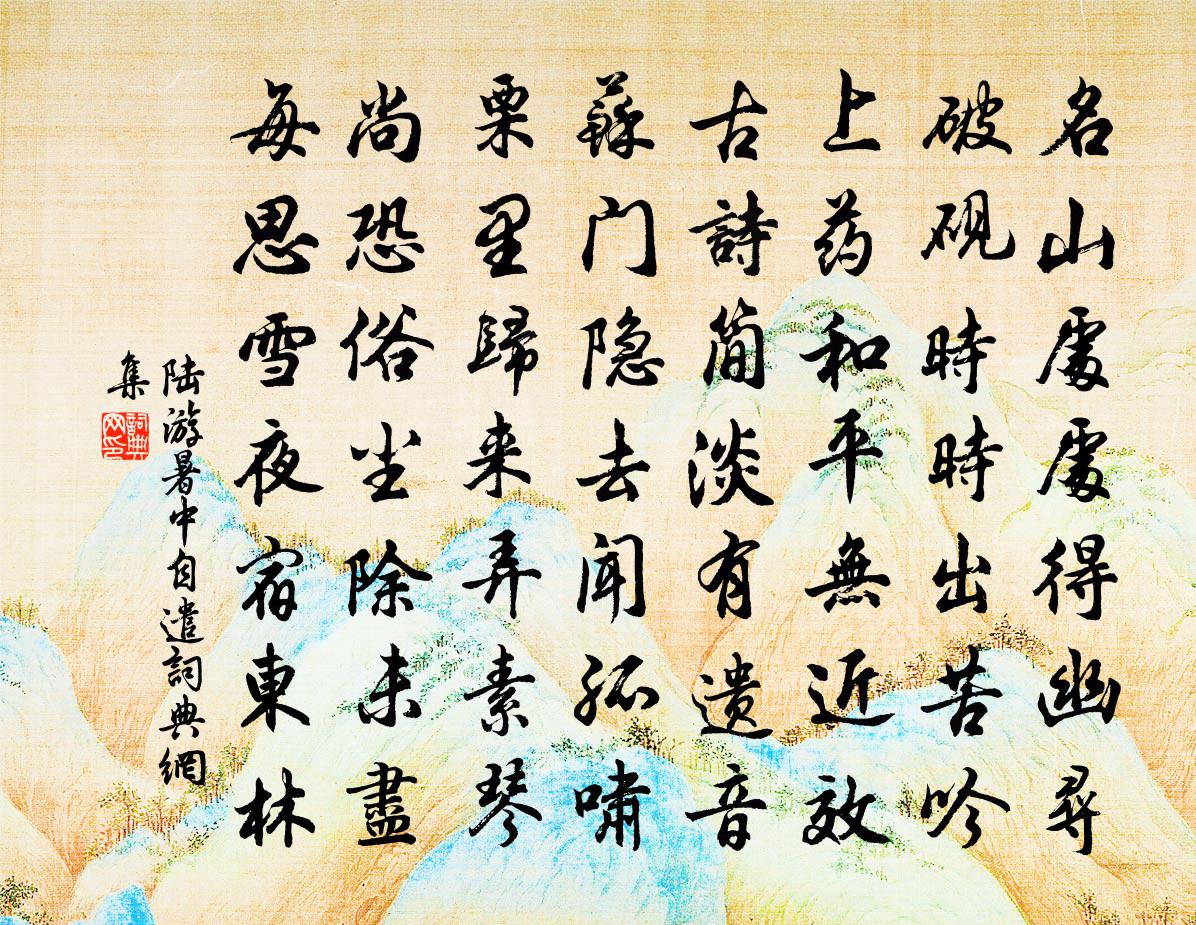 名山處處得幽尋
破硯時時出苦吟
上药和平無近效
古詩简淡有遗音
蘇门隐去闻孤嘯
栗里歸来弄素琴
尚恐俗尘除未盡
每思雪夜宿東林
陆游暑中自遣詞典網
集
詞典网印